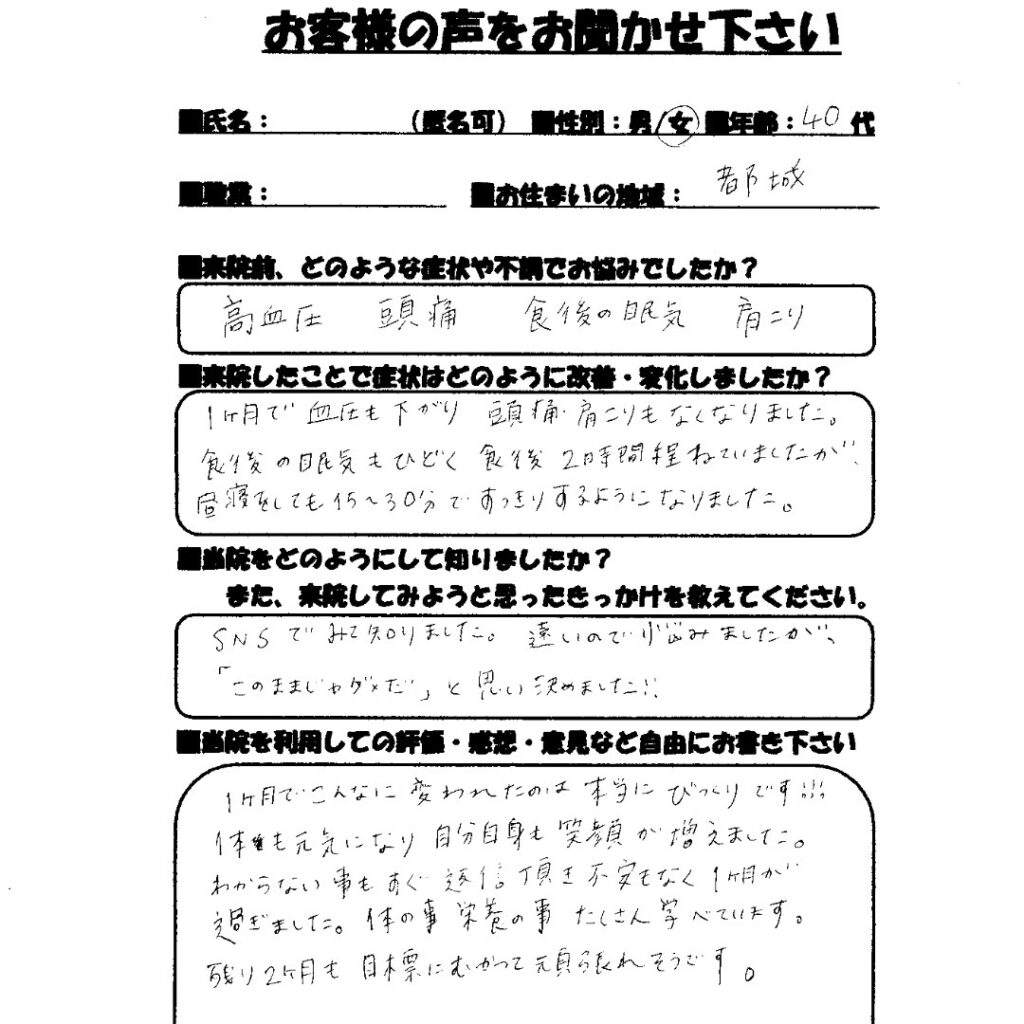 お客様の声をお聞かせ下さい
■氏名： （匿名可） ■性別：男/女 ■年齢：40代
■職業： ■お住まいの地域：都城
■来院前、どのような症状や不調でお悩みでしたか？
高血圧 頭痛 食後の眠気 肩こり
■来院したことで症状はどのように改善・変化しましたか？
1ヶ月で血圧も下がり 頭痛・肩こりもなくなりました。
食後の眠気もひどく 食後 2時間程ねていましたが、
昼寝をしても15～30分ですっきりするようになりました。
■当院をどのようにして知りましたか？
また、来院してみようと思ったきっかけを教えてください。
SNSでみて知りました。 遠いので 悩みましたが、
「このままじゃダメだ」と 思い 決めました!!
■当院を利用しての評価・感想・意見など自由にお書き下さい
1ヶ月でこんなに 変われたのは 本当に びっくりです!!!
体も元気になり 自分自身も 笑顔が 増えました。
わからない事もすぐ 返信頂き 不安もなく 1ヶ月が
過ぎました。体の事 栄養の事 たくさん 学べています。
残り2ヶ月も 目標にむかって 頑張れそうです。